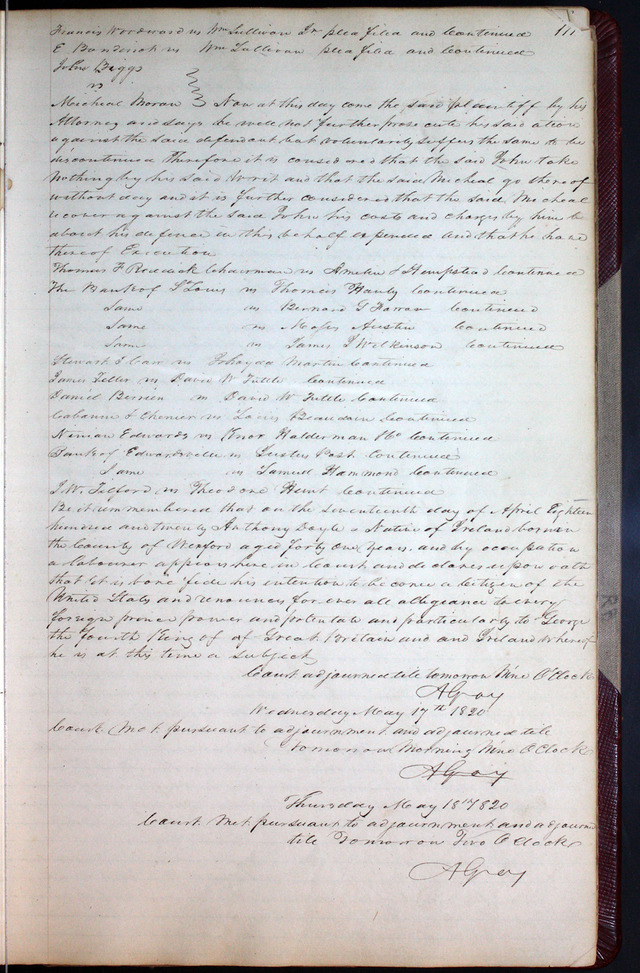 111
Francis Woodward vs Wm Sullivan Jr plea filed and Continued
E Bandrick vs Wm Sullivan plea filed and continued
John Biggs
vs
Micheal Moran Now at this day come the said plaintiff by his
Attorney and says he will not further prosecute his said ation
against the said defendant but volentarily suffers the same to be
discontinued Therefore it is considered that the said John take
Nothing by his said Writ and that the said Micheal go thereof
without day and it is further considered that the said Micheal
recover against the said John his costs and charges by him
about his defence in this behalf expended and that he have
thereof Execution
Thomas F Riddick Chairman vs Amelia S Hempstead Continued
The Bank of St Louis vs Thomas Hanly Continued
Same vs Bernard G Farrar Continued
Same vs Moses Austin Continued
Same vs James Wilkinson Continued
Stewart & Carr vs Martin Continued
James Tetler vs David W Tuttle Continued
Daniel Berrien vs David W Tuttle Continued
Cabanne & Chenier vs Louis Beaudoin Continued
Ninian Edwards vs Knor Halderman & Co Continued
Bank of Edwardsville vs Justus Post Continued
Same vs Samuel Hammond Continued
J. W. Telford vs Theodore Hunt Continued
Be it remembered that on the seventeenth day of April Eighteen
hundred and twenty Anthony Doyle a Native of Ireland born in
the County of Wexford aged forty one years, and by occupation
a labourer appears here in Court and declares upon oath
that it is bona fide his intention to become a Citizen of the
United States and renounces for ever all allegiance to every
foreign prince power and potentate and particularly to George
the fourth King of of Great Britain and and Ireland Whereof
he is at this time a subject
Court adjourned till tomorrow Nine O Clock
A Gray
Wednesday May 17th 1820
Court Met pursuant to adjournment and adjourned till
Tomorrow Morning Nine O Clock
A Gray
Thursday May 18th 1820
Court Met pursuant to adjournment and adjourned
till Tomorrow Two O Clock
A Gray